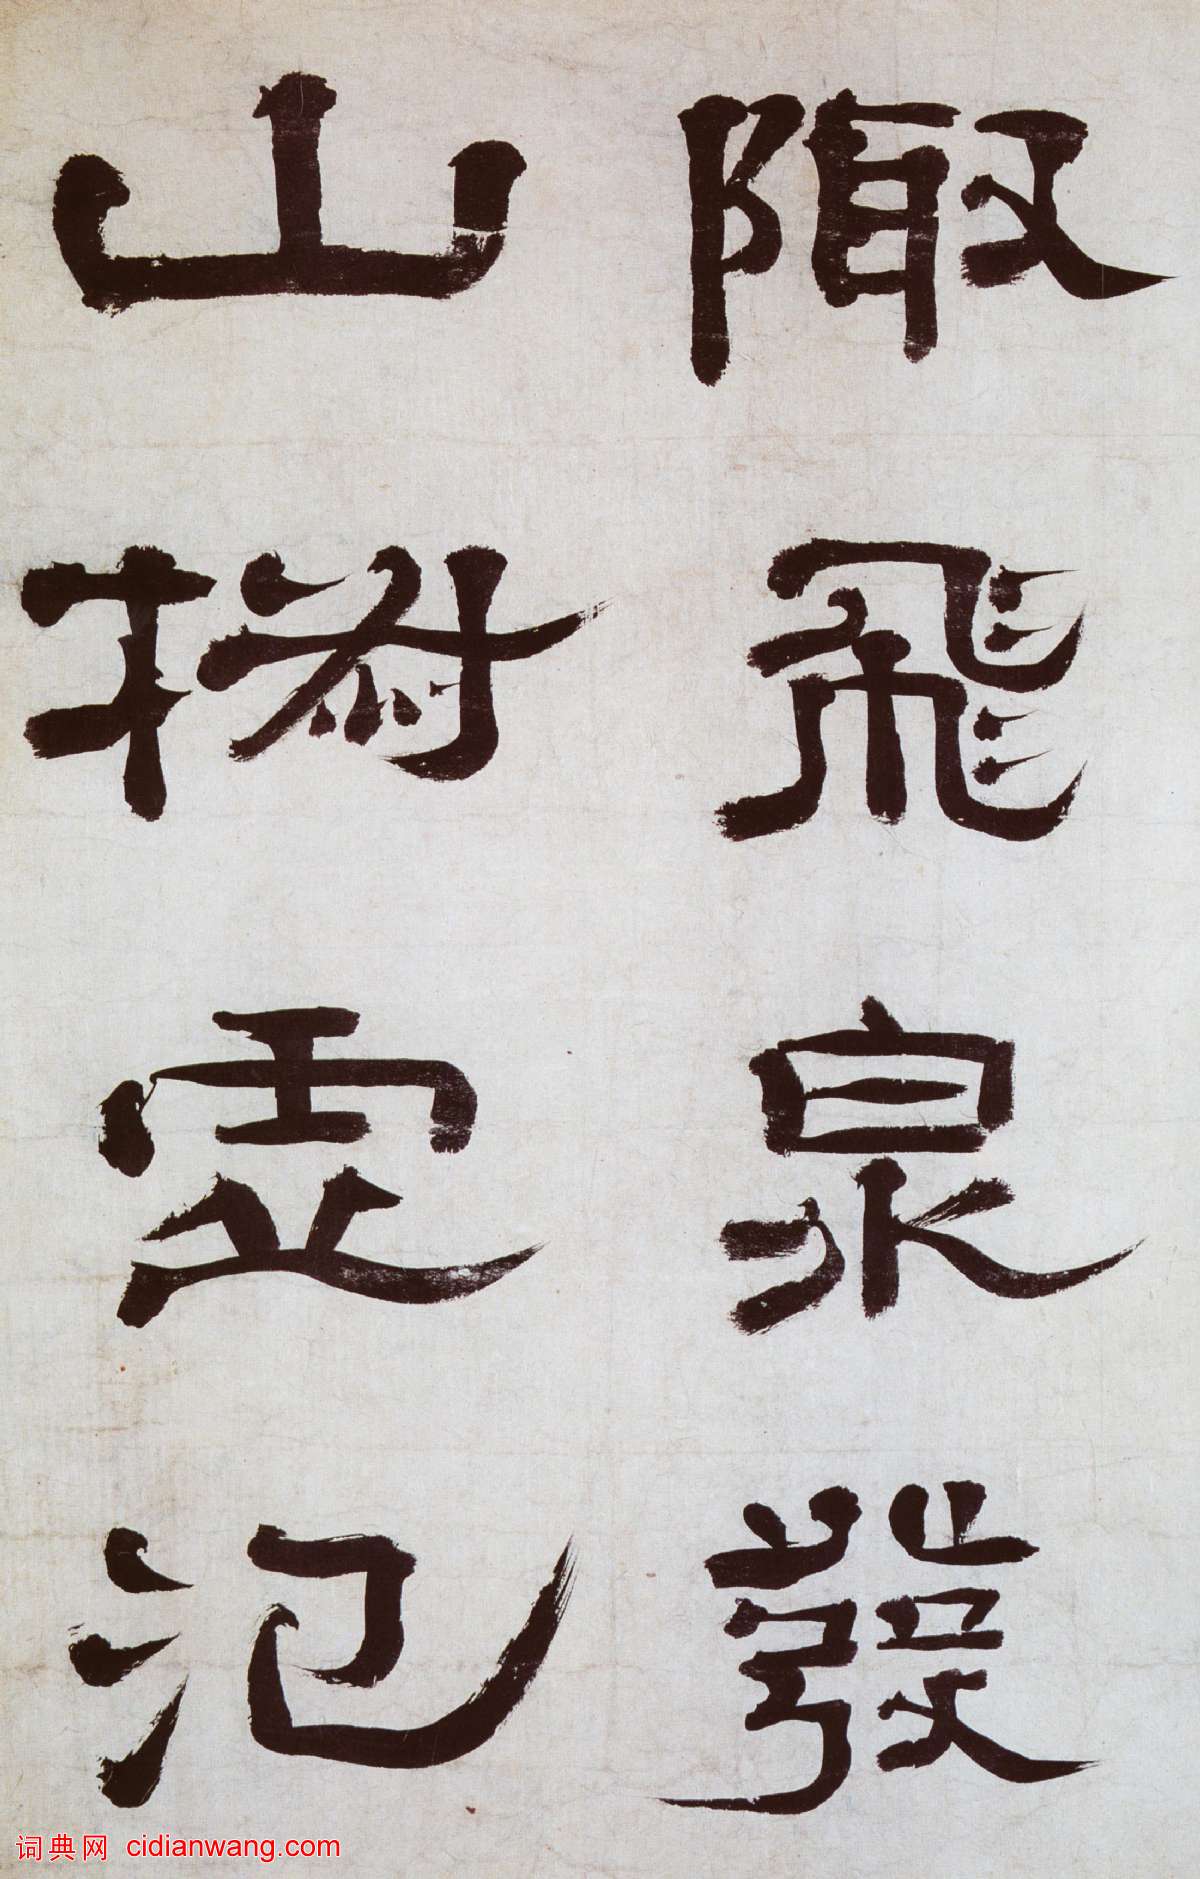 陬飛泉發
山椒虛氾
词典网 cidianwang.com